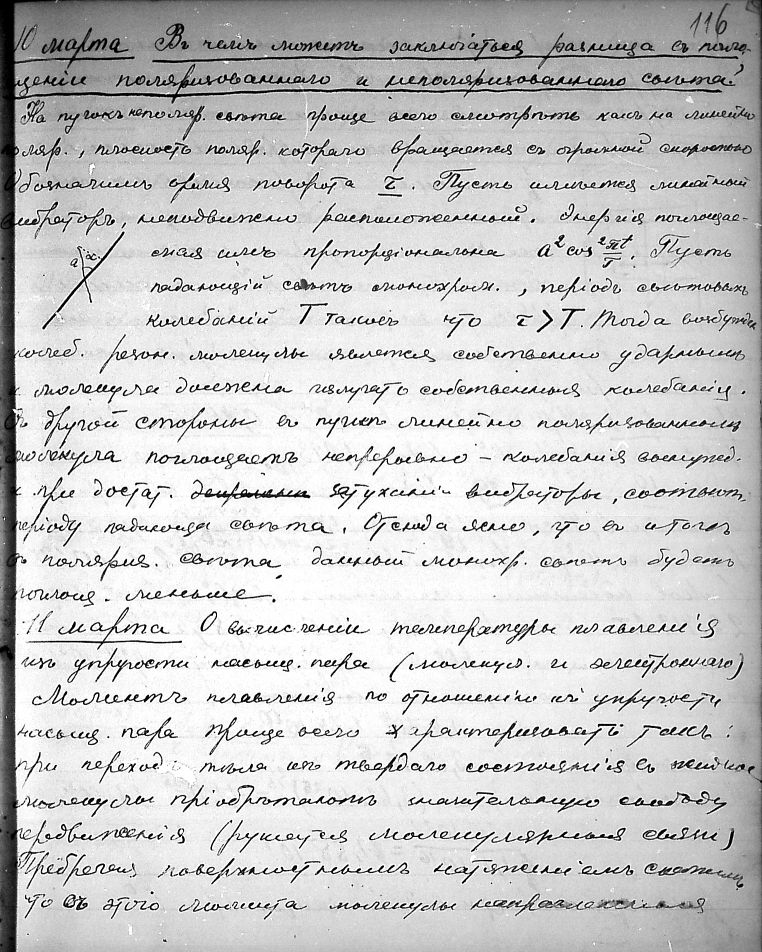 116
10 марта Въ чемъ можетъ заключаться разница въ погло-
щеніи поляризованнаго и неполяризованнаго свѣта?
На пучокъ неполяр. свѣта проще всего смотрѣть какъ на линейно
поляр., плоскость поляр. котораго вращается съ огромной скоростью
Обозначимъ время поворота τ. Пусть имѣется линейный
вибраторъ, неподвижно расположенный. Энергія поглощае-
a x
мая имъ пропорціональна a² cos² πt/τ. Пусть
падающій свѣтъ монохром., періодъ свѣтовыхъ
колебаній T таковъ что τ > T. Тогда возбужден
колеб. резон. молекулы является собственно ударнымъ
и молекула должна излучать собственныя колебанія.
Съ другой стороны въ пучкѣ линейно поляризованномъ
молекула поглощаетъ непрерывно – колебанія вынужд.
и при достат. затуханіи вибраторы, соотвѣт.
періоду падающа свѣта. Отсюда ясно, что въ
поляриз. свѣта данный монохр. свѣтъ будетъ
поглощ. меньше.
11 марта О вычисленіи температуры плавленія
изъ упругости насыщ. пара (молекул. и электроннаго)
Моментъ плавленія по отношенію къ упругости
насыщ. пара проще всего характеризовать такъ:
при переходѣ тѣла изъ твердаго состоянія въ жидкое
молекулы пріобрѣтаютъ значительную свободу
передвиженія (рушатся молекулярныя связи)
Пребрегая поверхностнымъ натяженіемъ скажемъ,
что съ этого момента молекулы